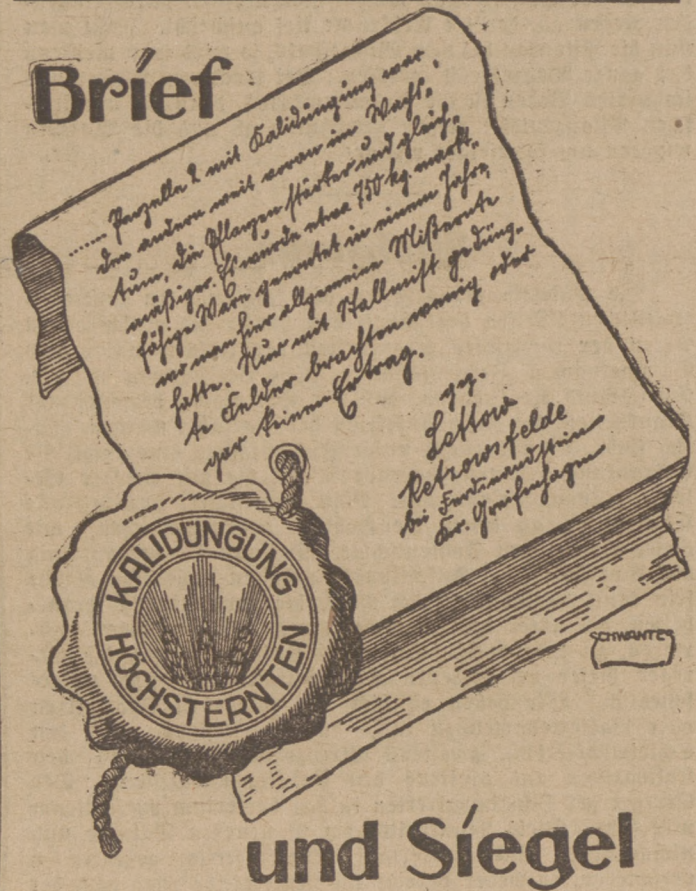 Brief
...... Parzelle 2 mit Kalidüngung war
den andern weit voran im Wachs-
tum, die Pflanzen stärker und gleich-
mäßiger. Es wurde etwa 750 kg markt-
fähige Ware geerntet in einem Jahre,
wo man hier allgemeine Mißernte
hatte. Nur mit Stallmist gedüng-
te Felder brachten wenig oder
gar keinen Ertrag.
gez.
Lettow
Retzowsfelde
bei Ferdinandstein
Kr. Greifenhagen
KALIDÜNGUNG
HÖCHSTERNTEN
SCHWANTES
und Siegel